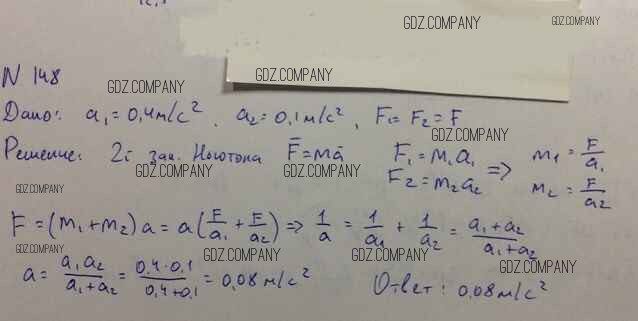 GDZ.COMPANY GDZ.COMPANY
N 148 GDZ.COMPANY GDZ.COMPANY
Дано: a₁ = 0,4 м/с². a₂ = 0,1 м/с², F₁ = F₂ = F
GDZ.COMPANY GDZ.COMPANY GDZ.COMPANY
Решение: 2й зак. Ньютона F̄ = mā F₁ = m₁a₁ F₂ = m₂a₂ => m₁ = F/a₁ m₂ = F/a₂
GDZ.COMPANY GDZ.COMPANY GDZ.COMPANY
GDZ.COMPANY
F = (m₁ + m₂) a = a (F/a₁ + F/a₂) => 1/a = 1/a₁ + 1/a₂ = a₁ + a₂/a₁ + a₂
GDZ.COMPANY GDZ.COMPANY GDZ.COMPANY GDZ.COMPANY
a = a₁a₂/a₁ + a₂ = 0,4 · 0,1/0,4 + 0,1 = 0,08 м/с² Ответ: 0,08 м/с²
GDZ.COMPANY GDZ.COMPANY GDZ.COMPANY